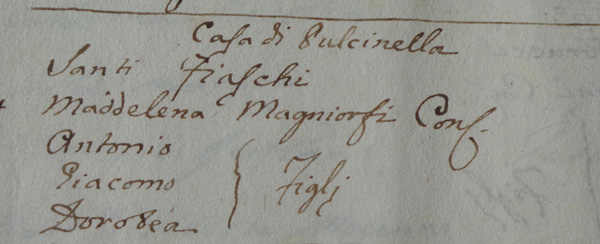 Casa di Pulcinella
Santi Fiaschi
Maddelena Magniorfi Cons.
Antonio
Giacomo } Figlj
Dorotea